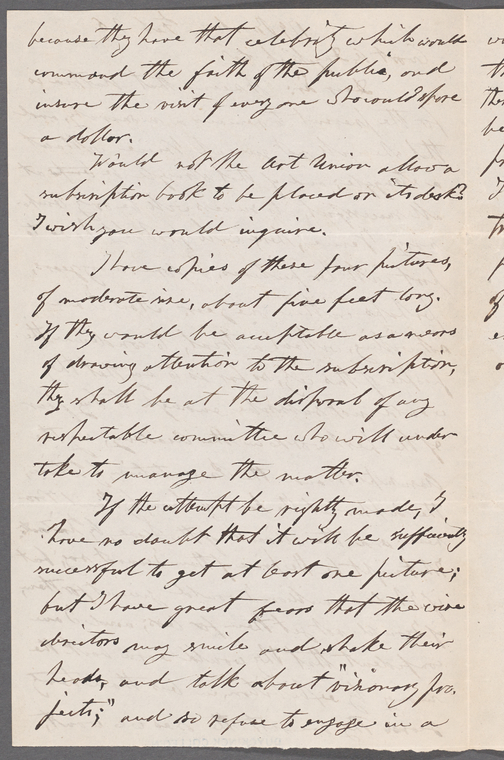 because they have that celebrity which would
command the faith of the public, and
insure the visit of every one who could spare
a dollar.
Would not the Art Union allow a
subscription book to be placed on its desk?
I wish you would inquire.
I have copies of these four pictures,
of moderate size, about five feet long.
If they would be acceptable as a means
of drawing attention to the subscription,
they shall be at the disposal of any
respectable committee who will under
take to manage the matter.
If the attempt be rightly made, I
have no doubt that it will be sufficiently
successful to get at least one picture;
but I have great fears that the wise
directors may smile and shake their
heads, and talk about "visionary pro-
jects;" and so refuse to engage in a